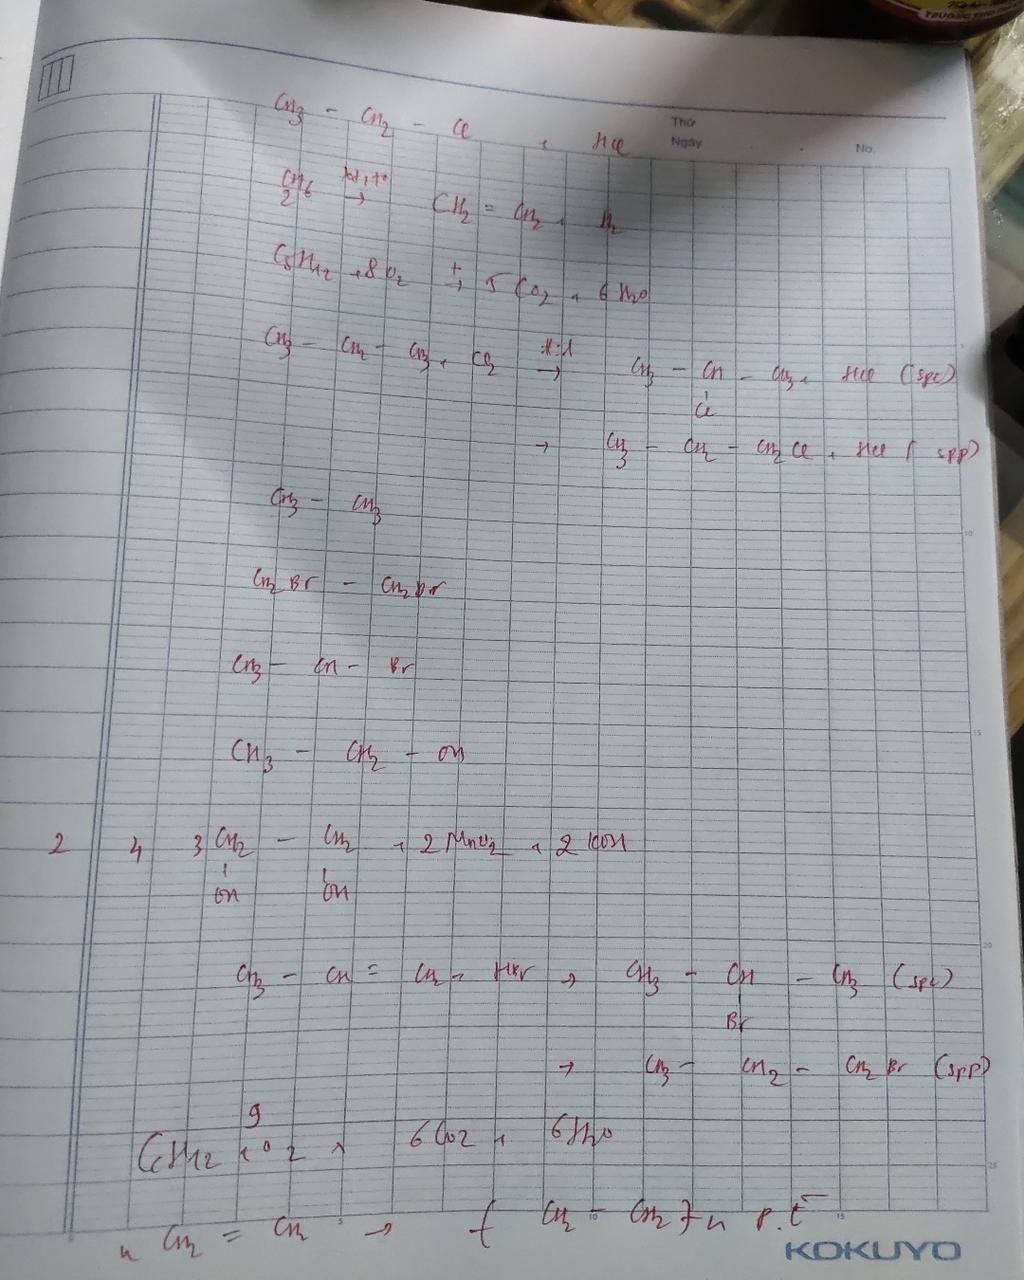 TRƯỜNG
Thứ
Ngày No.
CH3 - CH2 - Cl + HCl
C2H6 xt,to → CH2 = CH2 + H2
C5H12 + 8O2 t → 5CO2 + 6H2O
CH3 - CH2 - CH3 + Cl2 1:1 → CH3 - CH - CH3 + HCl (spc)
Cl
→ CH3 - CH2 - CH2Cl + HCl (spp)
CH3 - CH3
CH2Br - CH2Br
CH3 - CH - Br
CH3 - CH2 - OH
2 4 3 CH2 - CH2 + 2MnO2 + 2KOH
OH OH
CH3 - CH = CH2 + HBr → CH3 - CH - CH3 (spc)
Br
→ CH3 - CH2 - CH2Br (spp)
9
C6H12 + O2 → 6CO2 + 6H2O
n CH2 = CH2 → ( CH2 - CH2 ) n P.E
KOKUYO